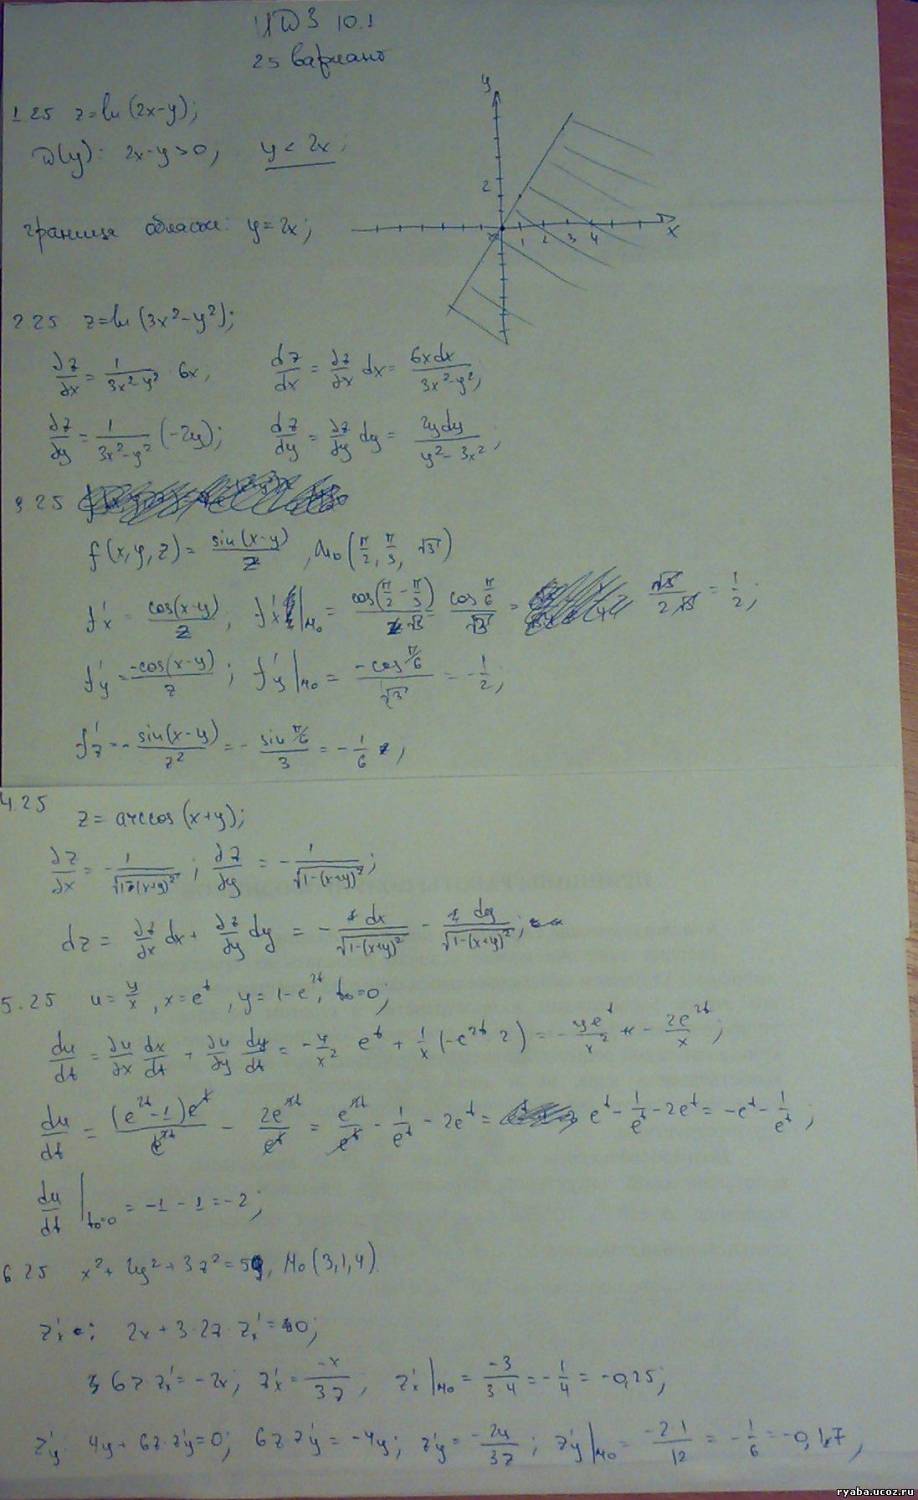 ИДЗ 10.1
25 вариант
1.25 z=ln(2x-y);
D(y): 2x-y>0, y<2x;
граница области: y=2x;
y
2
1 2 3 4
x
2.25 z=ln(3x²-y²);
∂z/∂x = 1/(3x²-y²) · 6x, dz/dx = ∂z/∂x dx = 6xdx/(3x²-y²),
∂z/∂y = 1/(3x²-y²) (-2y); dz/dy = ∂z/∂y dy = 2ydy/(y²-3x²),
3.25
f(x,y,z) = sin(x-y)/z, M₀(π/2, π/3, √3)
f'x = cos(x-y)/z, f'x|M₀ = cos(π/2 - π/3)/√3 = cos π/6/√3 = √3/(2√3) = 1/2;
f'y = -cos(x-y)/z; f'y|M₀ = -cos π/6/√3 = -1/2,
f'z = - sin(x-y)/z² = - sin π/6/3 = -1/6,
4.25 z = arccos(x+y);
∂z/∂x = - 1/√(1-(x+y)²); ∂z/∂y = - 1/√(1-(x+y)²);
dz = ∂z/∂x dx + ∂z/∂y dy = - dx/√(1-(x+y)²) - dy/√(1-(x+y)²);
5.25 u = y/x, x=e^t, y=1-e^2t, t₀=0;
du/dt = ∂u/∂x dx/dt + ∂u/∂y dy/dt = -y/x² e^t + 1/x (-e^2t 2) = - ye^t/x² - 2e^2t/x;
du/dt = (e^2t-1)e^t/e^2t - 2e^2t/e^t = e^2t/e^t - 1/e^t - 2e^t = e^t - 1/e^t - 2e^t = -e^t - 1/e^t;
du/dt|t₀=0 = -1 - 1 = -2;
6.25 x²+2y²+3z²=59, M₀(3,1,4)
z'x: 2x+3·2z·z'x=0;
6z z'x = -2x; z'x = -x/3z, z'x|M₀ = -3/(3·4) = -1/4 = -0,25;
z'y 4y+6z·z'y=0; 6z·z'y = -4y; z'y = -2y/3z; z'y|M₀ = -2·1/12 = -1/6 = -0,17,
ryaba.ucoz.ru